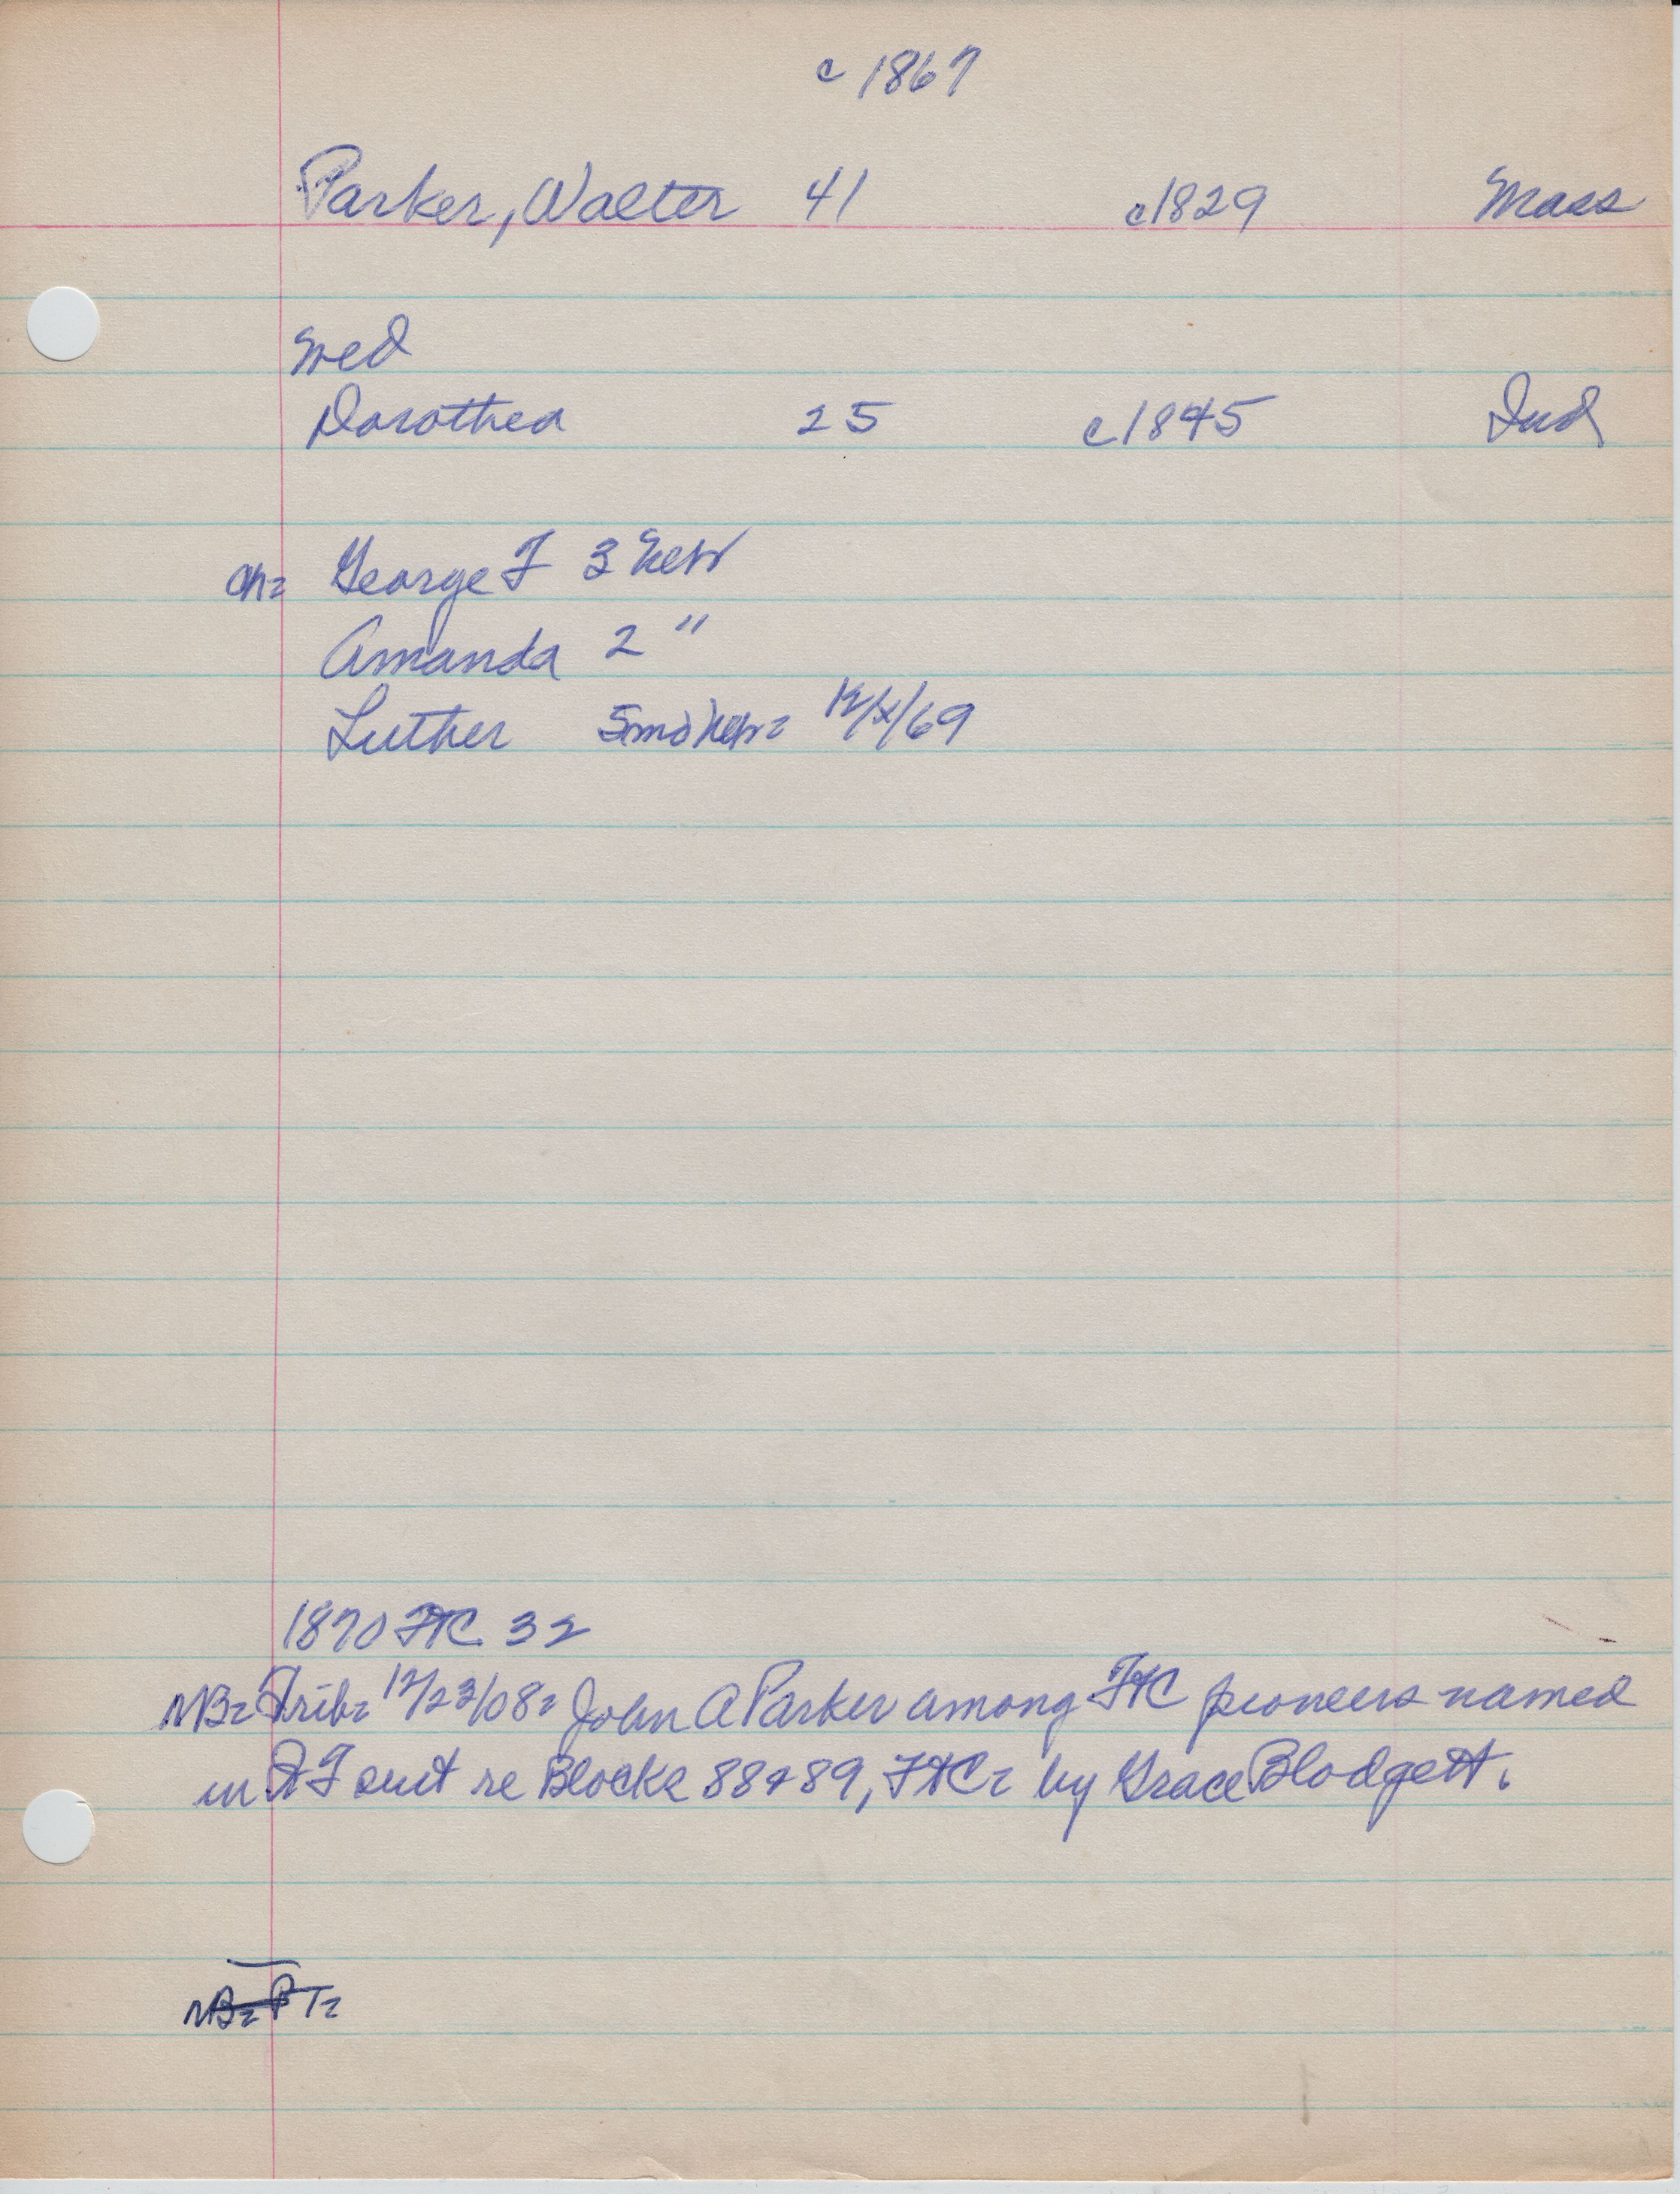 c 1867
Parker, Walter 41 c1829 Mass
Med
Dorothea 25 c1845 Ind
Ch= George F 3 Neb
Amanda 2 "
Luther 5mo Neb= 12/x/69
1870 FTC 32
NB= Trib= 12/23/08= John A Parker among FTC pioneers named
in suit re Blocks 88 & 89, FTC= by Grace Blodgett.
NB= PT=